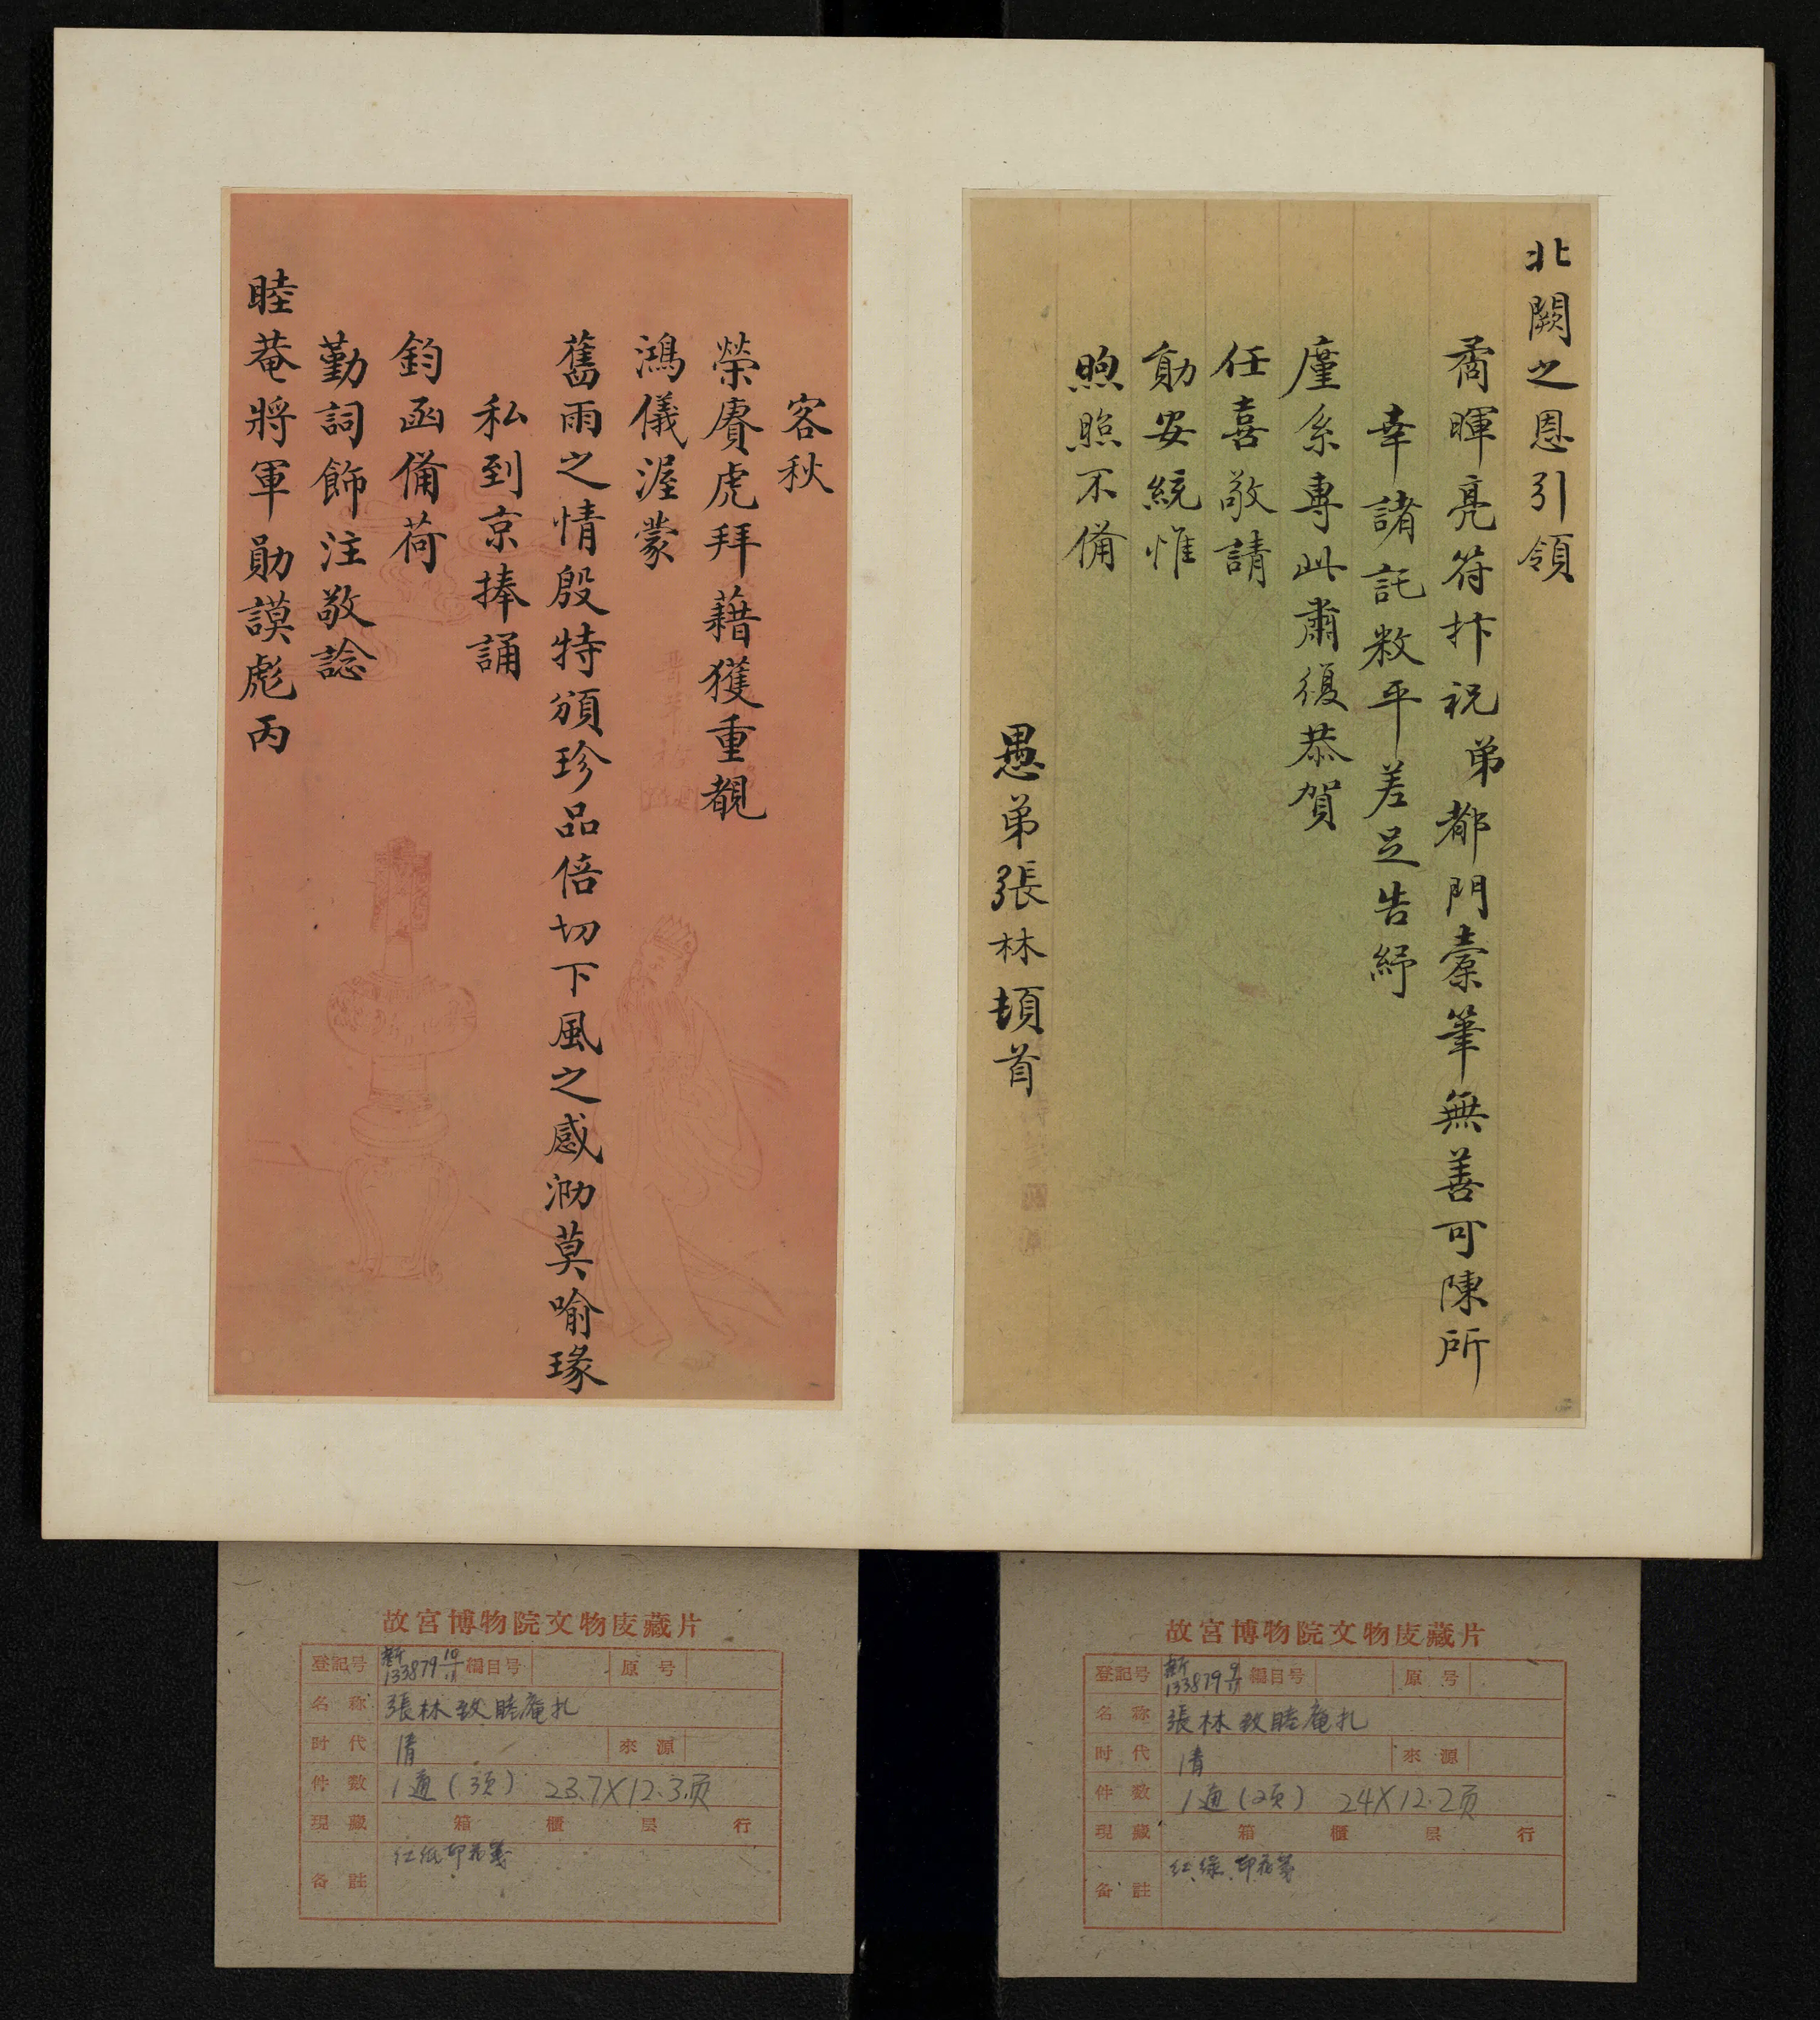 北闕之恩引領
矞暉亮符抃祝弟都門橐筆無善可陳所
幸諸託敉平差足告紓
廑系專此肅復恭賀
任喜敬請
勛安統惟
煦照不備
愚弟張林頓首
客秋
榮賡虎拜藉獲重覩
鴻儀渥蒙
舊雨之情殷特頒珍品倍切下風之感泐莫喻瑑
私到京捧誦
鈞函備荷
勤詞飾注敬諗
睦菴將軍勛謨彪丙
故宮博物院文物庋藏片
登記号 新133879 9/17 編目号 原号
名称 張林致睦庵札
时代 清 來源
件数 1通(2页) 24X12.2页
現藏 箱 櫃 层 行
备註 红绿印花箋
故宮博物院文物庋藏片
登記号 新133879 10/17 編目号 原号
名称 張林致睦庵札
时代 清 來源
件数 1通(3页) 23.7X12.3页
現藏 箱 櫃 层 行
备註 红纸印花箋